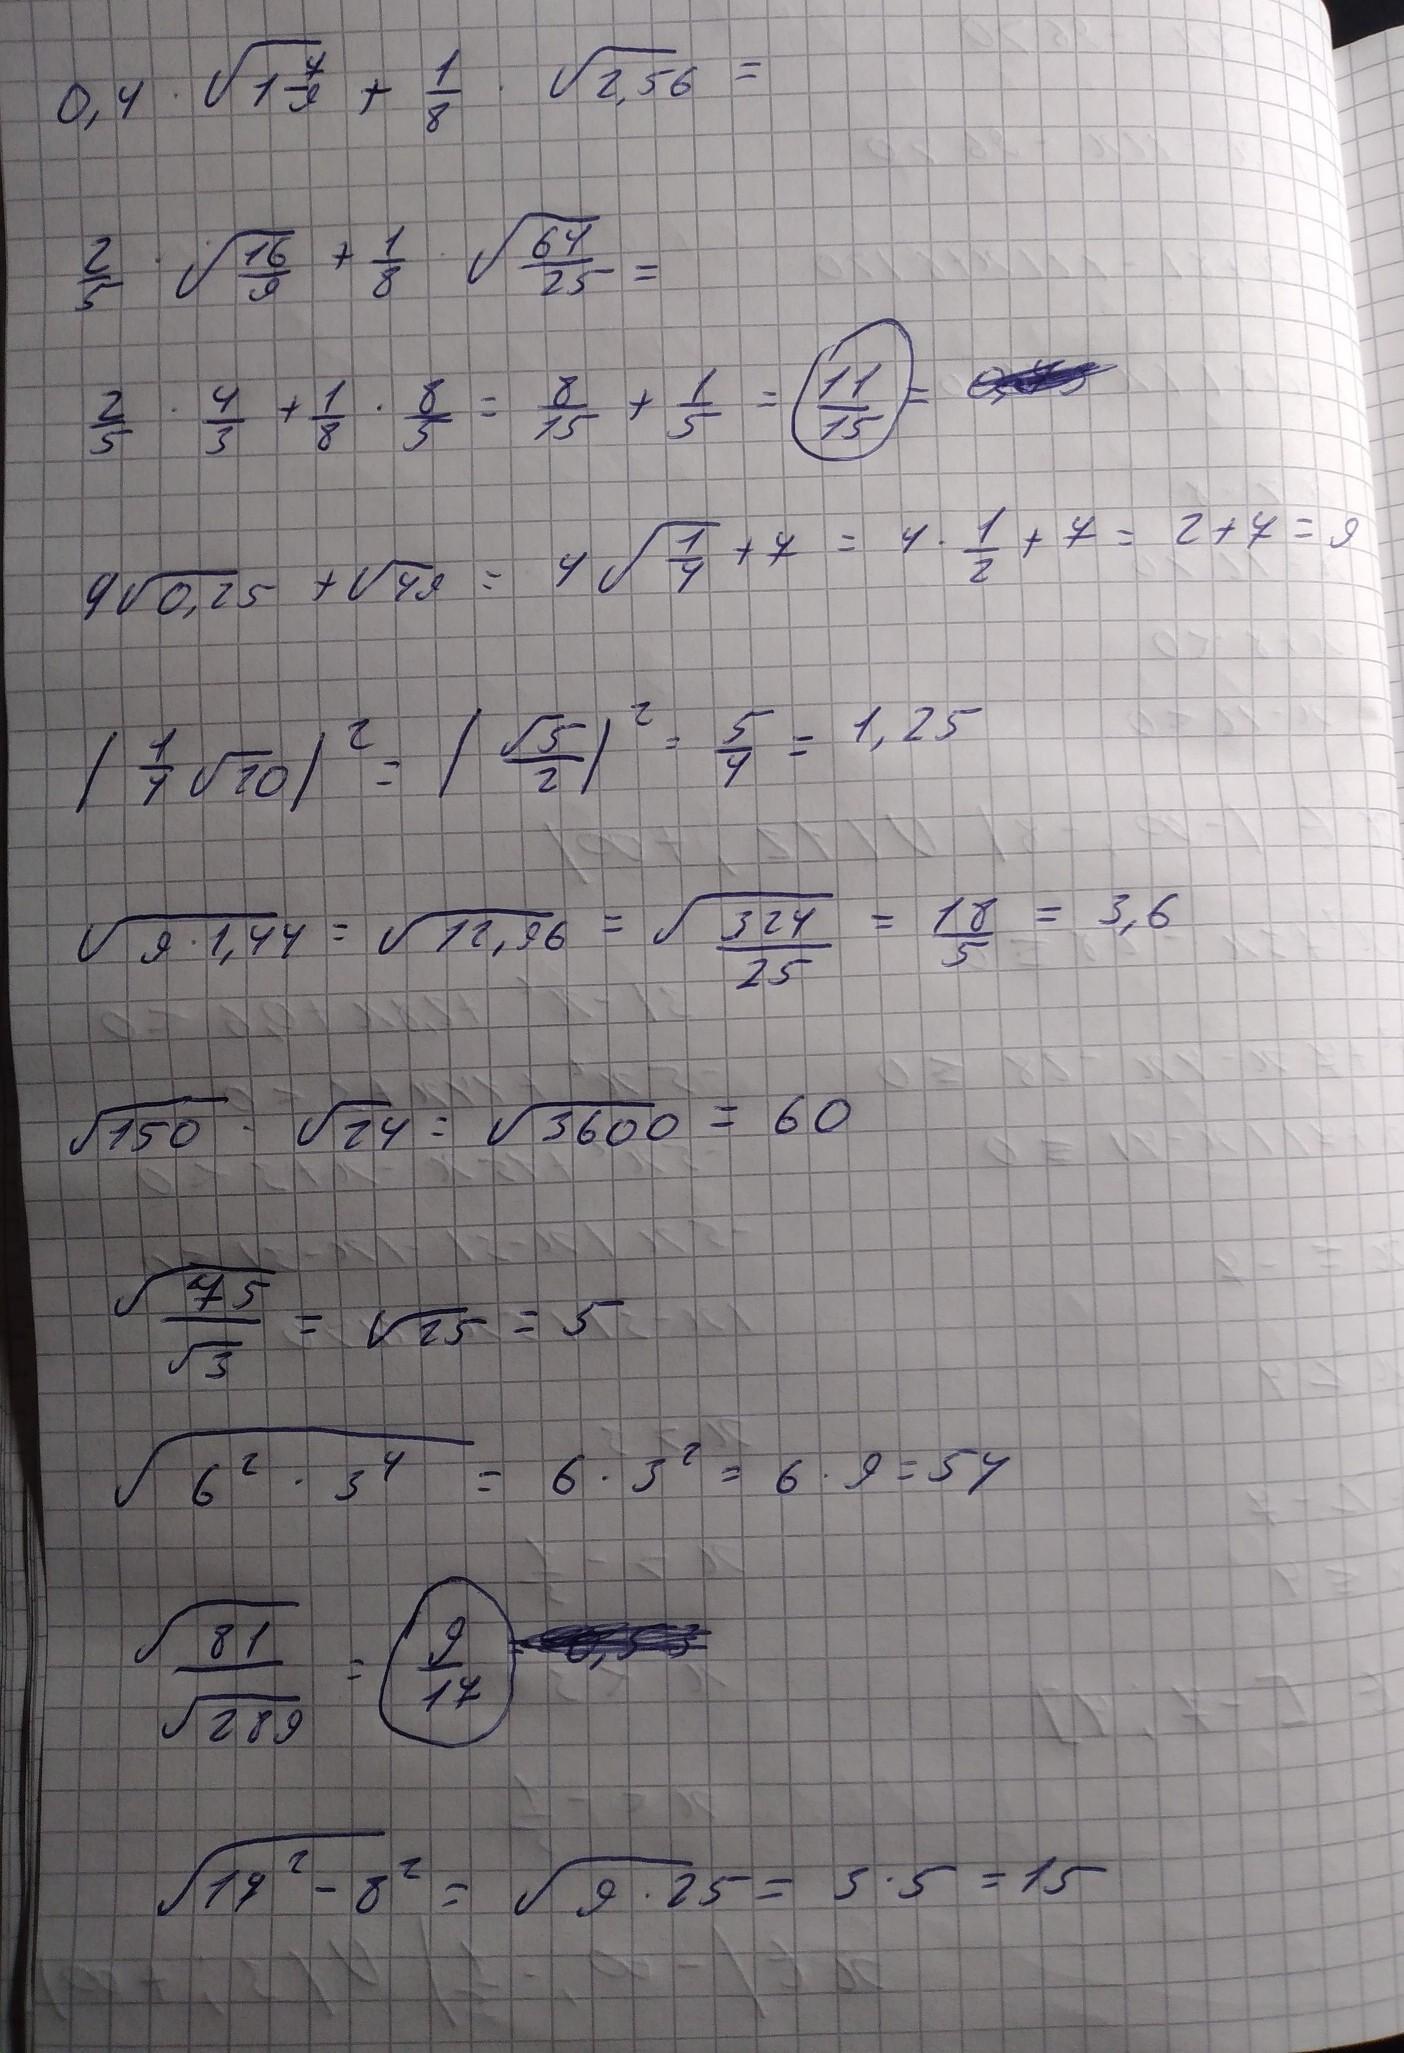 0,4 · √1 7/9 + 1/8 · √2,56 =
2/5 · √16/9 + 1/8 · √64/25 =
2/5 · 4/3 + 1/8 · 8/5 = 8/15 + 1/5 = 11/15 =
4√0,25 + √49 = 4√1/4 + 7 = 4 · 1/2 + 7 = 2 + 7 = 9
(1/4 √20)² = (√5/2)² = 5/4 = 1,25
√9 · 1,44 = √12,96 = √324/25 = 18/5 = 3,6
√150 · √24 = √3600 = 60
√75/√3 = √25 = 5
√6² · 3⁴ = 6 · 3² = 6 · 9 = 54
√81/√289 = 9/17
√17² - 8² = √9 · 25 = 3 · 5 = 15